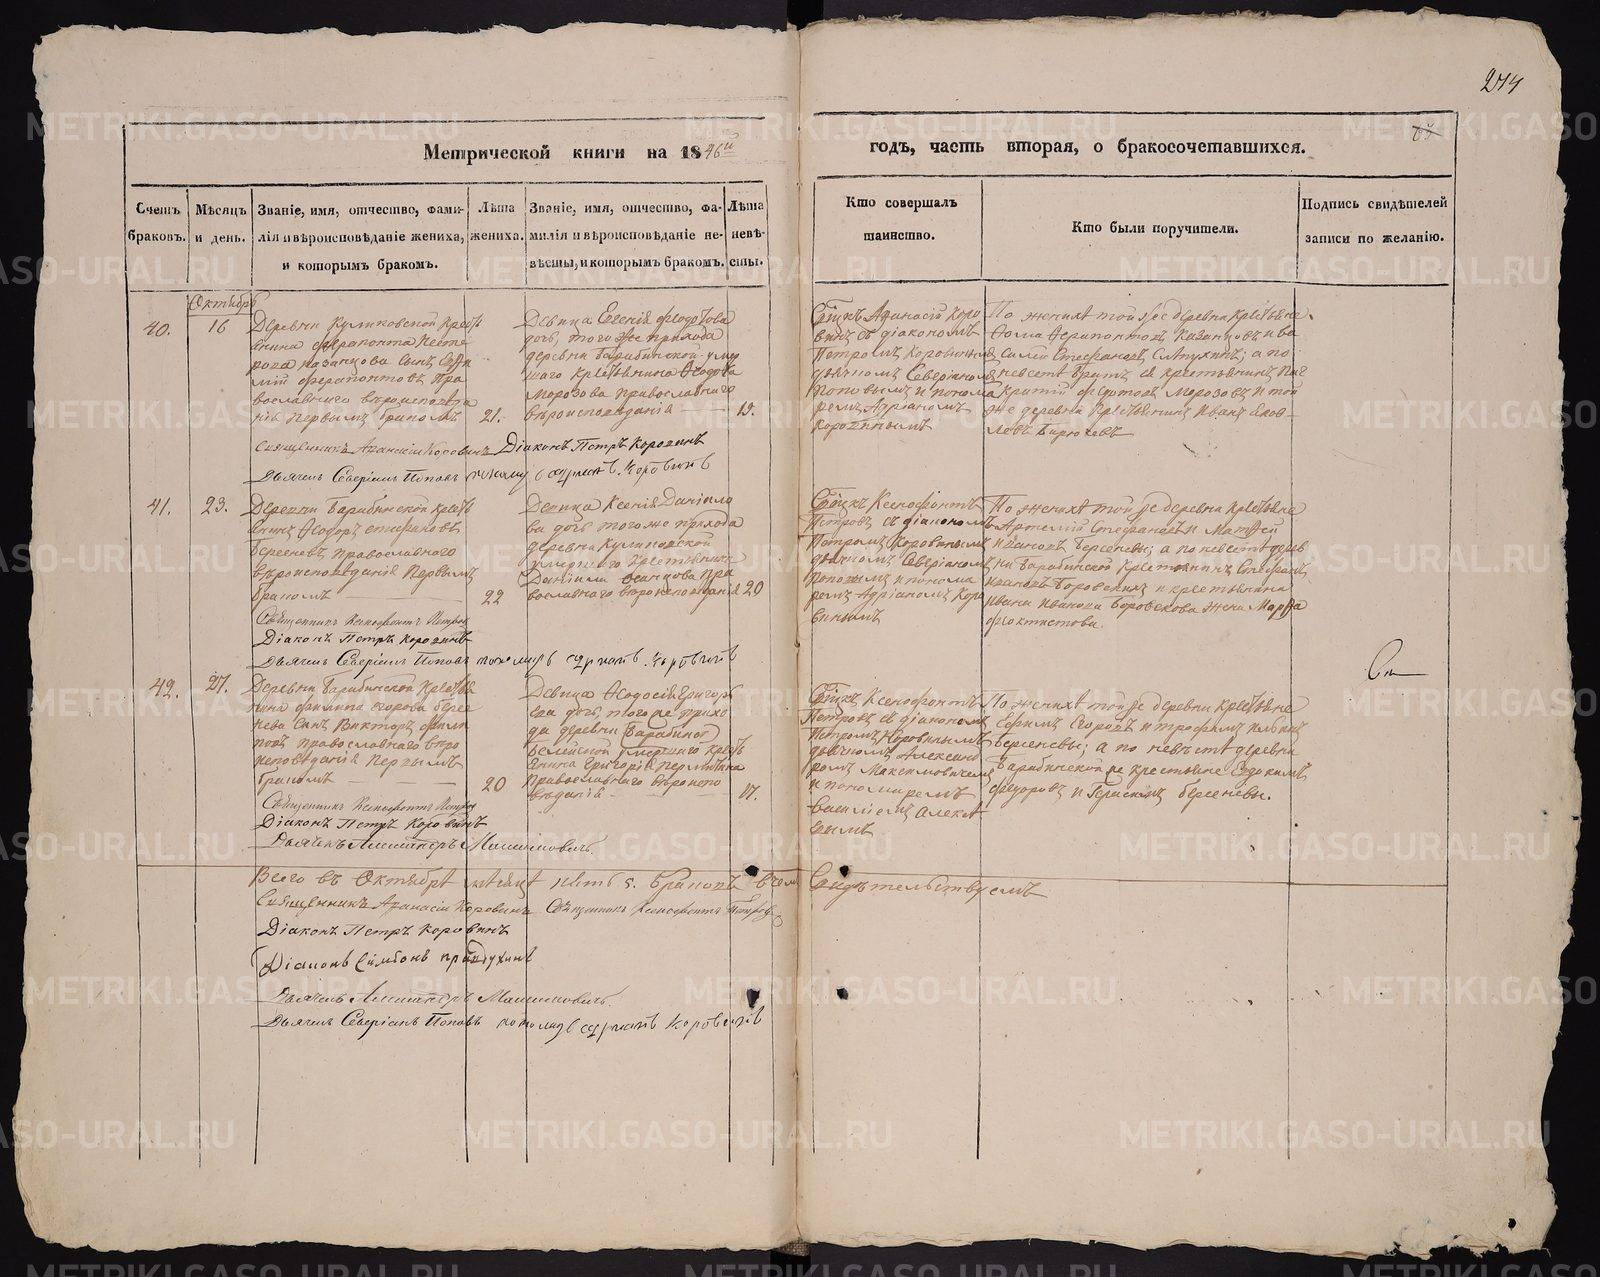 274
Метрической книги на 1846й
годъ, часть вторая, о бракосочетавшихся.
Счетъ браковъ.
Мѣсяцъ и день.
Званіе, имя, отчество, фами-
лія и вѣроисповѣданіе жениха,
и которымъ бракомъ.
Лѣта
жениха.
Званіе, имя, отчество, фа-
милія и вѣроисповѣданіе не-
вѣсты, и которымъ бракомъ.
Лѣта
невѣ-
сты.
Кто совершалъ
таинство.
Кто были поручители.
Подпись свидѣтелей
записи по желанію.
Октябрь
40.
16
Деревни Куликовской Кресть
янина Ферапонта
Казанцова сынъ
Ферапонтовъ, Пра
вославнаго вѣроисповѣда
нія первымъ бракомъ
21.
Девица Евгенія Федотова
дочь, того же прихода
деревни Барабинской умер
шаго Крестьянина Федота
Морозова Православнаго
вѣроисповѣданія
19.
Афанасій Коро
винъ съ діакономъ
Петромъ Коровинымъ
дьячкомъ Северіаномъ
Поповымъ и понома
ремъ Адріаномъ
Коровинымъ
По женихѣ той же деревни Крестьяне
Ферапонтовъ Казанцовъ и Ва
силій Стефановъ; а по
невестѣ братъ ея крестьянинъ
Федотовъ Морозовъ и той
же деревни Крестьянинъ Иванъ Яков-
левъ Бирюковъ
Священникъ Афанасій Коровинъ Діаконъ Петръ Коровинъ
Дьячекъ Северіанъ Поповъ пономарь Адріанъ Коровинъ
41.
23.
Деревни Барабинской Кресть
янинъ Федоръ
Берсеневъ Православнаго
вѣроисповѣданія Первымъ
бракомъ
22
Девица Ксенія Даніило
ва дочь того же прихода
деревни Куликовской
умершаго Крестьянина
Даніила Пра
вославнаго вѣроисповѣданія
20
Ксенофонтъ
Петровъ съ діакономъ
Петромъ Коровинымъ
дьячкомъ Северіаномъ
Поповымъ и понома
ремъ Адріаномъ Коро
винымъ
По женихѣ той же деревни Крестьяне
Артемій Стефановъ и Матѳей
Ивановъ Берсеневы; а по невестѣ дерев
ни Барабинской Крестьянинъ Стефанъ
Ивановъ Боровсковъ и крестьянина
Ивана Иванова Боровскова жена Марѳа
Феоктистова.
Священникъ Ксенофонтъ Петровъ
Діаконъ Петръ Коровинъ
Дьячекъ Северіанъ Поповъ пономарь Адріанъ Коровинъ
42.
27.
Деревни Барабинской Крестья
нина Филипа Егорова Берсе
нева сынъ Викторъ Фили
повъ Православнаго вѣро
исповѣданія Первымъ
бракомъ
20
Девица Федосія Григорь
ева дочь, того же прихо
да деревни Барабиной
умершаго Кресть
янина Григорія Пермикина
Православнаго вѣроиспо
вѣданія
17.
Ксенофонтъ
Петровъ съ діакономъ
Петромъ Коровинымъ
дьячкомъ Александ
ромъ Максимовичемъ
и пономаремъ
Василіемъ
По женихѣ той же деревни Крестьяне
Ефимъ Егоровъ и Трофимъ
Берсеневы; а по невѣстѣ деревни
Барабинской же крестьяне Евдокимъ
Федоровъ и Герасимъ Берсеневы.
Священникъ Ксенофонтъ Петровъ
Діаконъ Петръ Коровинъ
Дьячекъ Александръ Максимовичь
Всего въ Октябрѣ месяцѣ пять 5. браковъ въ чемъ Свидѣтельствуемъ
Священникъ Афанасій Коровинъ Священникъ Ксенофонтъ Петровъ
Діаконъ Петръ Коровинъ
Діаконъ Симеонъ
Дьячекъ Александръ Максимовичь
Дьячекъ Северіанъ Поповъ пономарь Адріанъ Коровинъ
METRIKI.GASO-URAL.RU